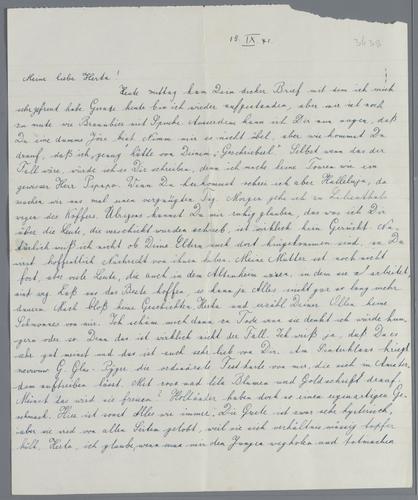 19. IX 41.
3638
Meine liebe Herta!
Heute mittag kam Dein dicker Brief mit dem ich mich
sehr gefreut habe. Gerade heute bin ich wieder aufgestanden, aber mir ist noch
zu mute wie Braunbier mit Spucke. Ausserdem kann ich Dir nur sagen, daß
Du eine dumme Jöre bist. Nimm mir es nicht übel, aber wie kommst Du
drauf, daß ich "genug" hätte von Deinem "Geschreibsel". Selbst wenn das der
Fall wäre, würde ich es Dir schreiben, denn ich mache keine Touren wie ein
gewisser Herr Pipapo. Wenn Du herkommst schrei ich aber Halleluja, da
machen wir uns mal einen vergnügten Tag. Morgen gehe ich zu
wegen des Koffers. Übrigens kannst Du mir ruhig glauben, das was ich Dir
über die Leute, die verschickt wurden schrieb, ist wirklich kein Gerücht.
natürlich weiß ich nicht ob Deine Eltern auch dort hingekommen sind, na Du
wirst hoffentlich Nachricht von ihnen haben. Meine Mutter ist noch nicht
fort, aber viele Leute, die auch in dem Altersheim waren, in dem sie arbeitet,
sind weg. Laß uns das Beste hoffen, es kann ja Alles nicht gar so lang mehr
dauern. Mach bloß keine Geschichten, Herta und erzähl Deiner Ollen keine
Schmonzes von mir. Ich schäm mich dann zu Tode wenn sie denkt ich würde hun-
gern oder so. Denn das ist wirklich nicht der Fall. Ich weiß ja, daß Du es
sehr gut meinst und das ist auch sehr lieb von Dir. Am
die ordinärste Postkarte von mir, die sich in Amster-
dam auftreiben lässt. Mit rosa und lila Blumen und Goldschrift drauf.
Meinst du wird sie freuen? Holländer haben doch so einen eigenartigen Ge-
schmack. Hier ist sonst Alles wie immer. Die Grete ist zwar sehr hysterisch,
aber sie wird von allen Seiten gelobt, weil sie sich verhältnis mässig tapfer
hält. Herta, ich glaube, wenn man mir den Jungen wegholen und totmachen